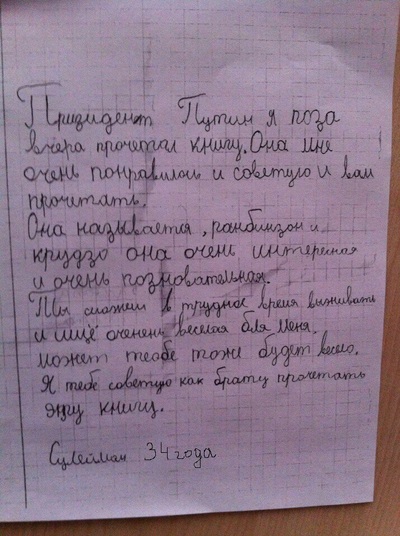 Призидент Путин я поза
вчера прочетал книгу. Она мне
очень понравилось и советую и вам
прочетать.
Она называется, ранбинзон и
крудзо она очень интересная
и очень познователная.
Ты сможеш в трудное время выживать
и ишё оченень веселая для меня.
может тебе тоже будет весело.
Я тебе советую как брату прочетать
эту книгу.
Сулейман 34 года